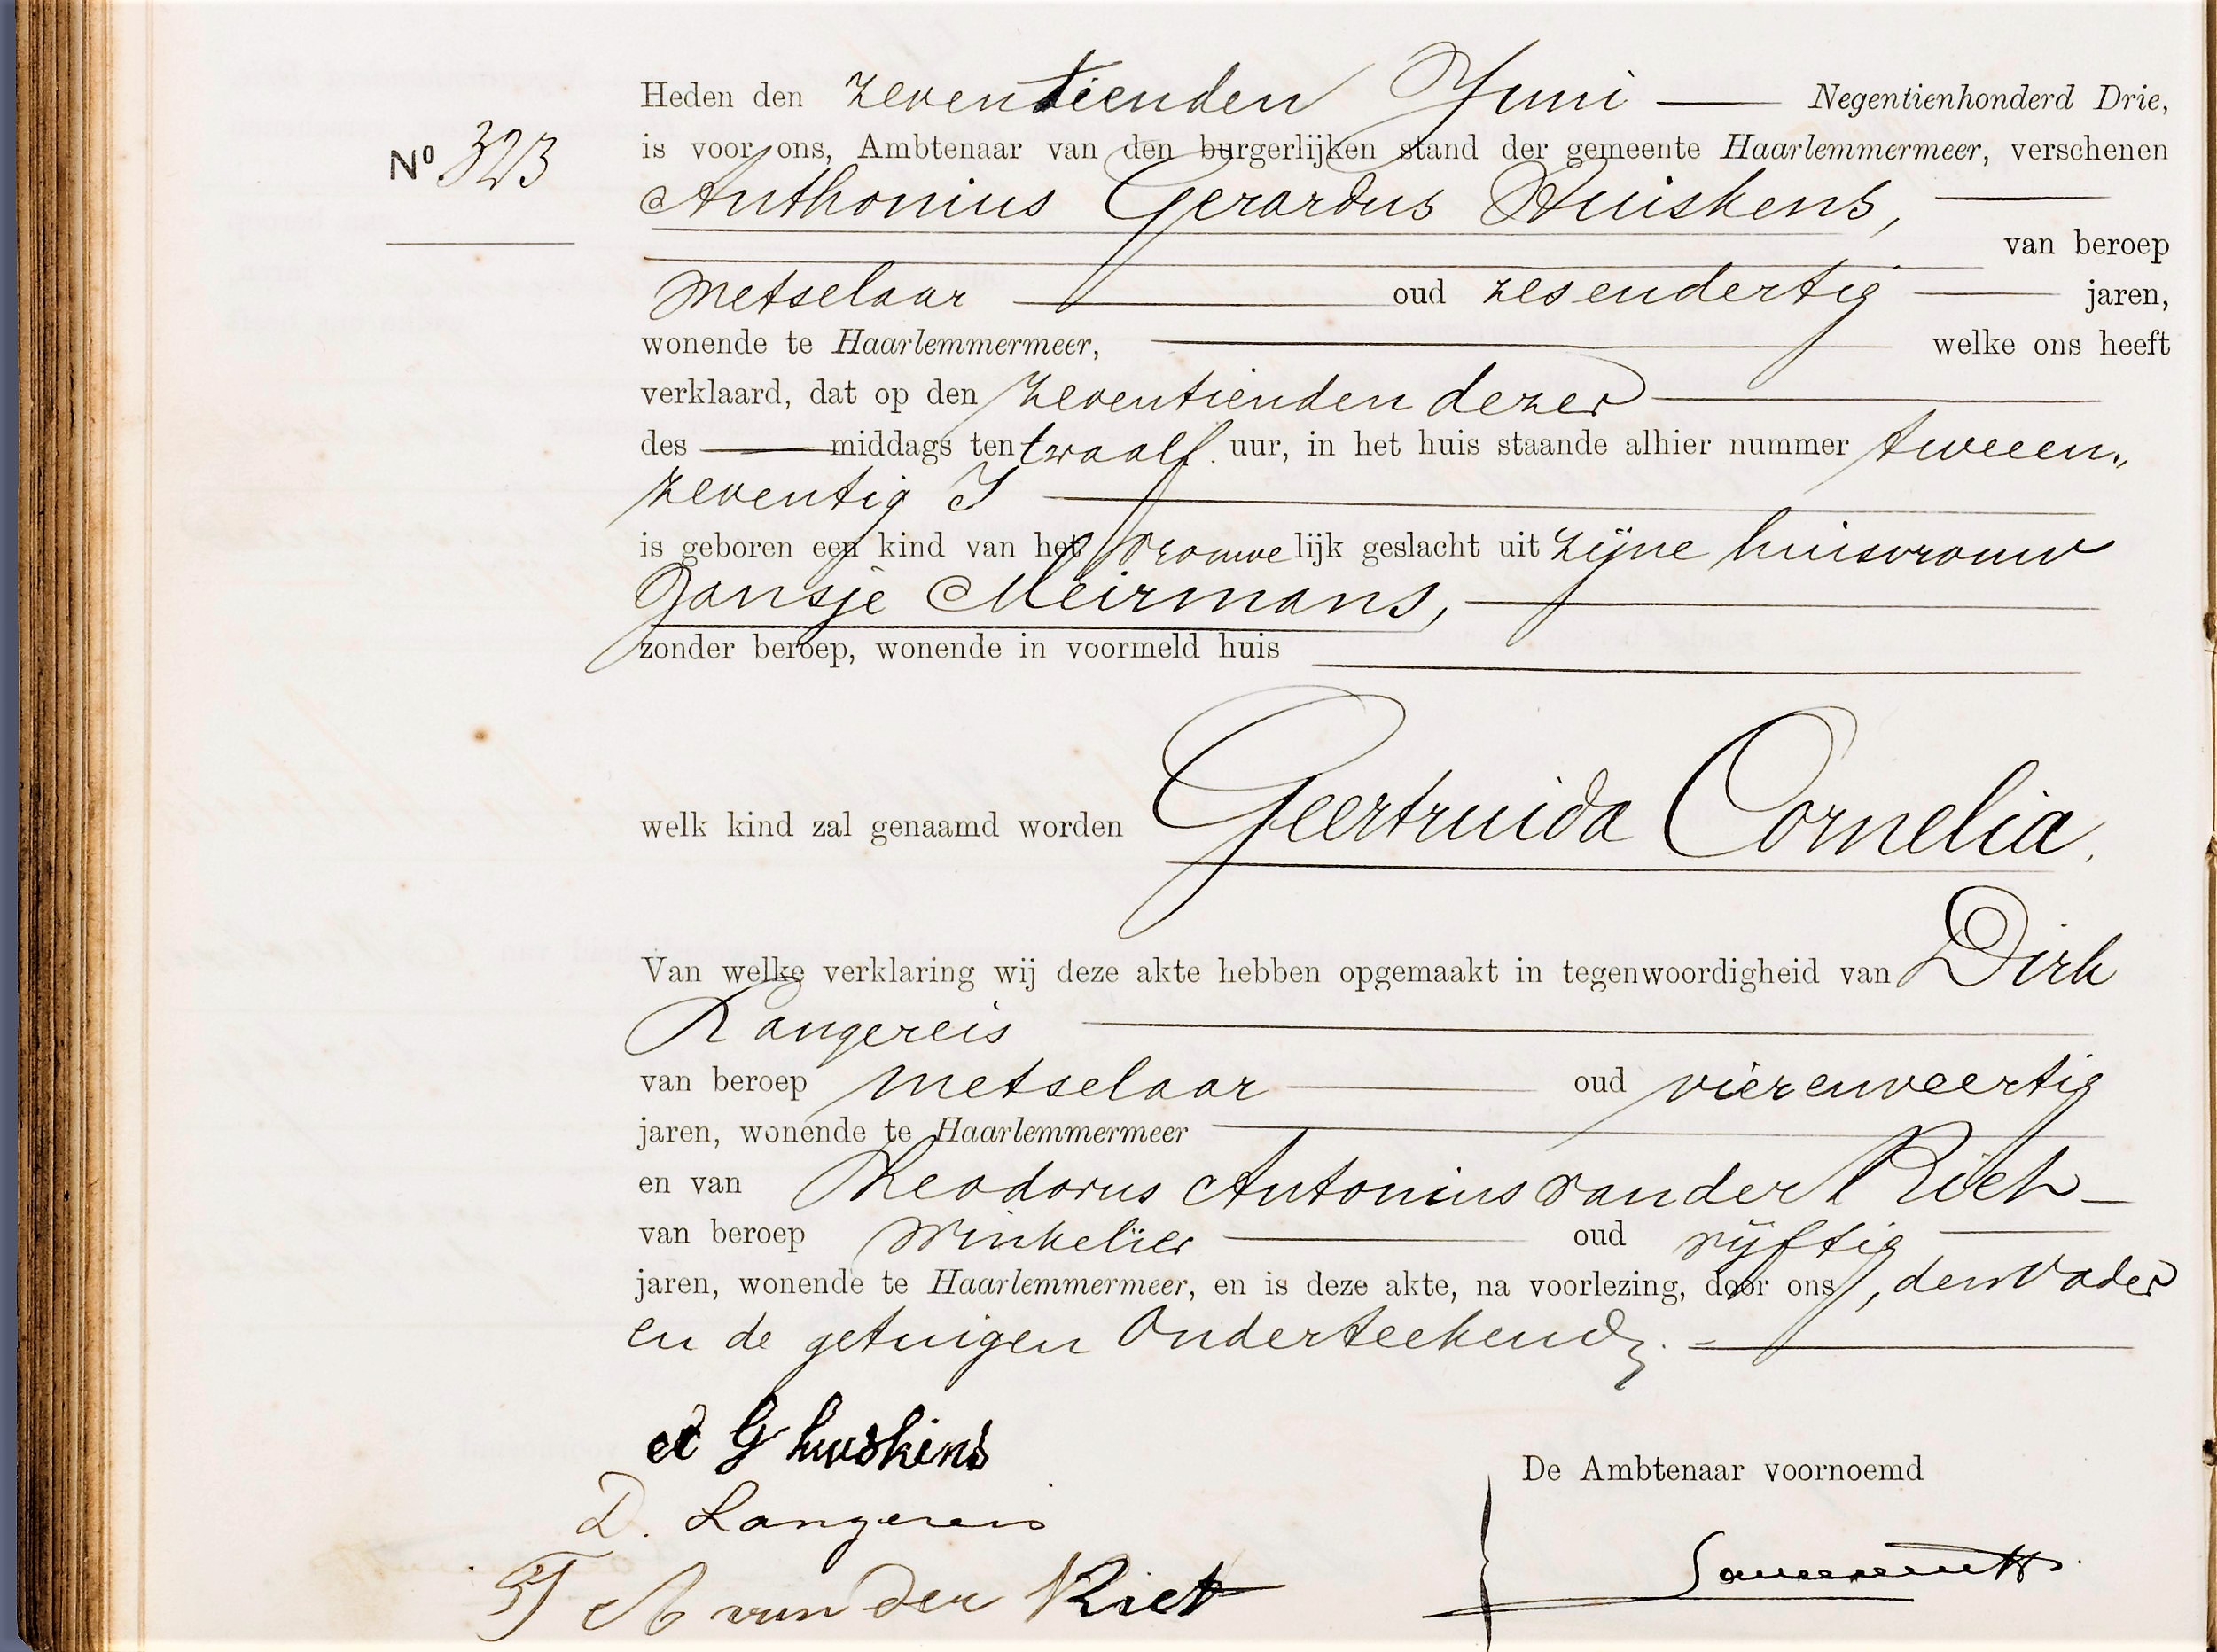 Heden den zeventienden Juni — Negentienhonderd Drie,
Nº 323
is voor ons, Ambtenaar van den burgerlijken stand der gemeente Haarlemmermeer, verschenen
Anthonius Gerardus Huiskens, —
van beroep
metselaar — oud zesendertig — jaren,
wonende te Haarlemmermeer, — welke ons heeft
verklaard, dat op den zeventienden dezer —
des — middags ten twaalf uur, in het huis staande alhier nummer tweeen„
zeventig I —
is geboren een kind van het vrouwelijk geslacht uit zijne huisvrouw
Jansje Meirmans, —
zonder beroep, wonende in voormeld huis —
welk kind zal genaamd worden Geertruida Cornelia.
Van welke verklaring wij deze akte hebben opgemaakt in tegenwoordigheid van Dirk
Langereis —
van beroep metselaar — oud vierenveertig
jaren, wonende te Haarlemmermeer —
en van Theodorus Antonius van der Riet —
van beroep winkelier — oud vijftig —
jaren, wonende te Haarlemmermeer, en is deze akte, na voorlezing, door ons, den vader
en de getuigen onderteekend. —
A G huiskens
De Ambtenaar voornoemd
D. Langereis
T A van der Riet